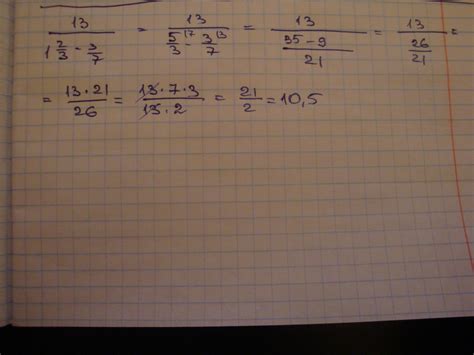 13 / (1 2/3 - 3/7) = 13 / (5/3 (7 - 3/7 (3) = 13 / ((35-9)/21) = 13 / (26/21) =
= 13·21 / 26 = 13·7·3 / 13·2 = 21/2 = 10,5